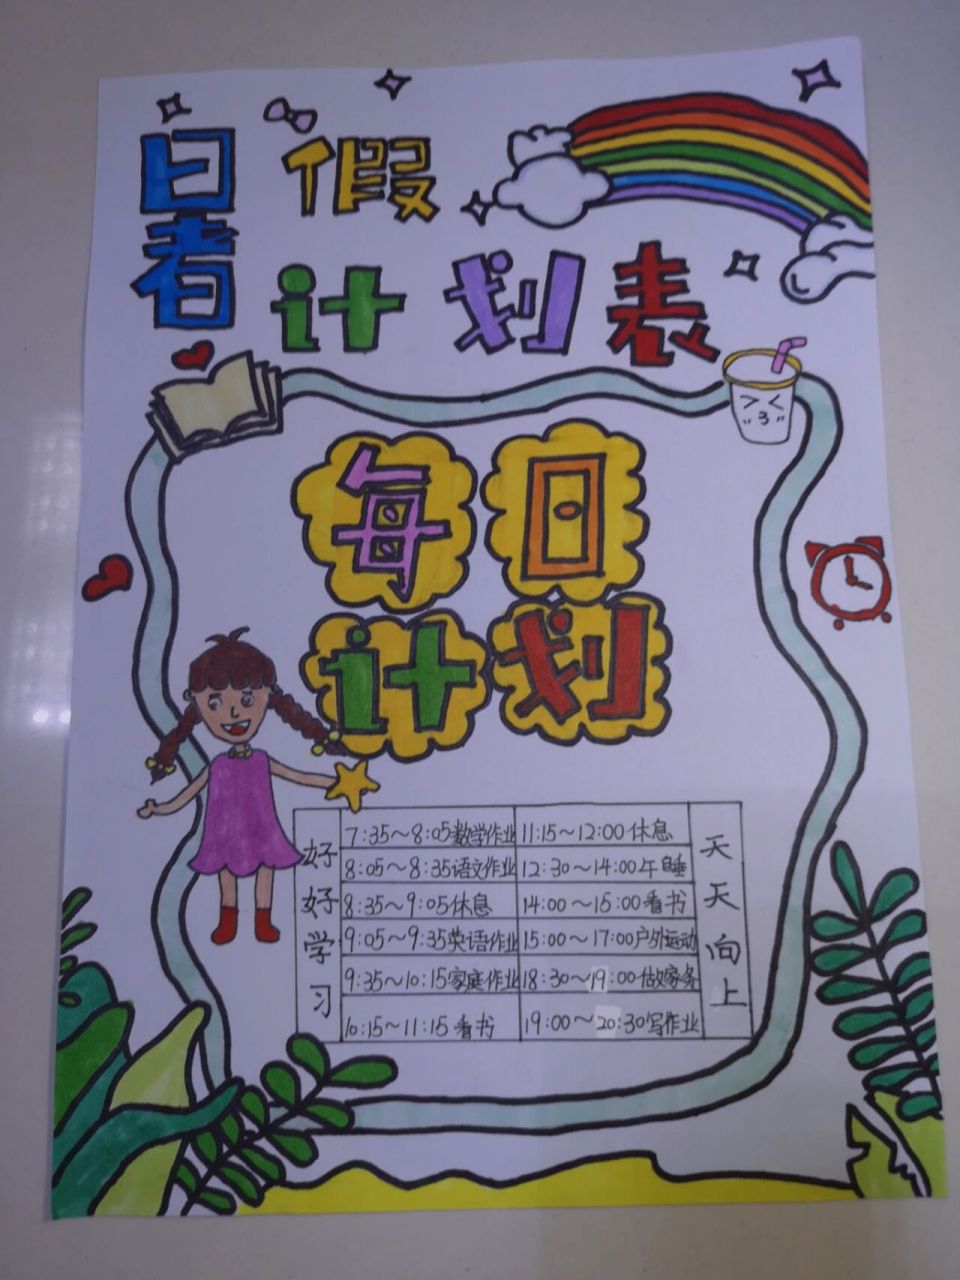 暑假
计划表
每日
计划
好好学习
7:35～8:05数学作业 11:15～12:00休息
8:05～8:35语文作业 12:30～14:00午睡
8:35～9:05休息 14:00～15:00看书
9:05～9:35英语作业 15:00～17:00户外运动
9:35～10:15家庭作业 18:30～19:00做家务
10:15～11:15看书 19:00～20:30写作业
天天向上